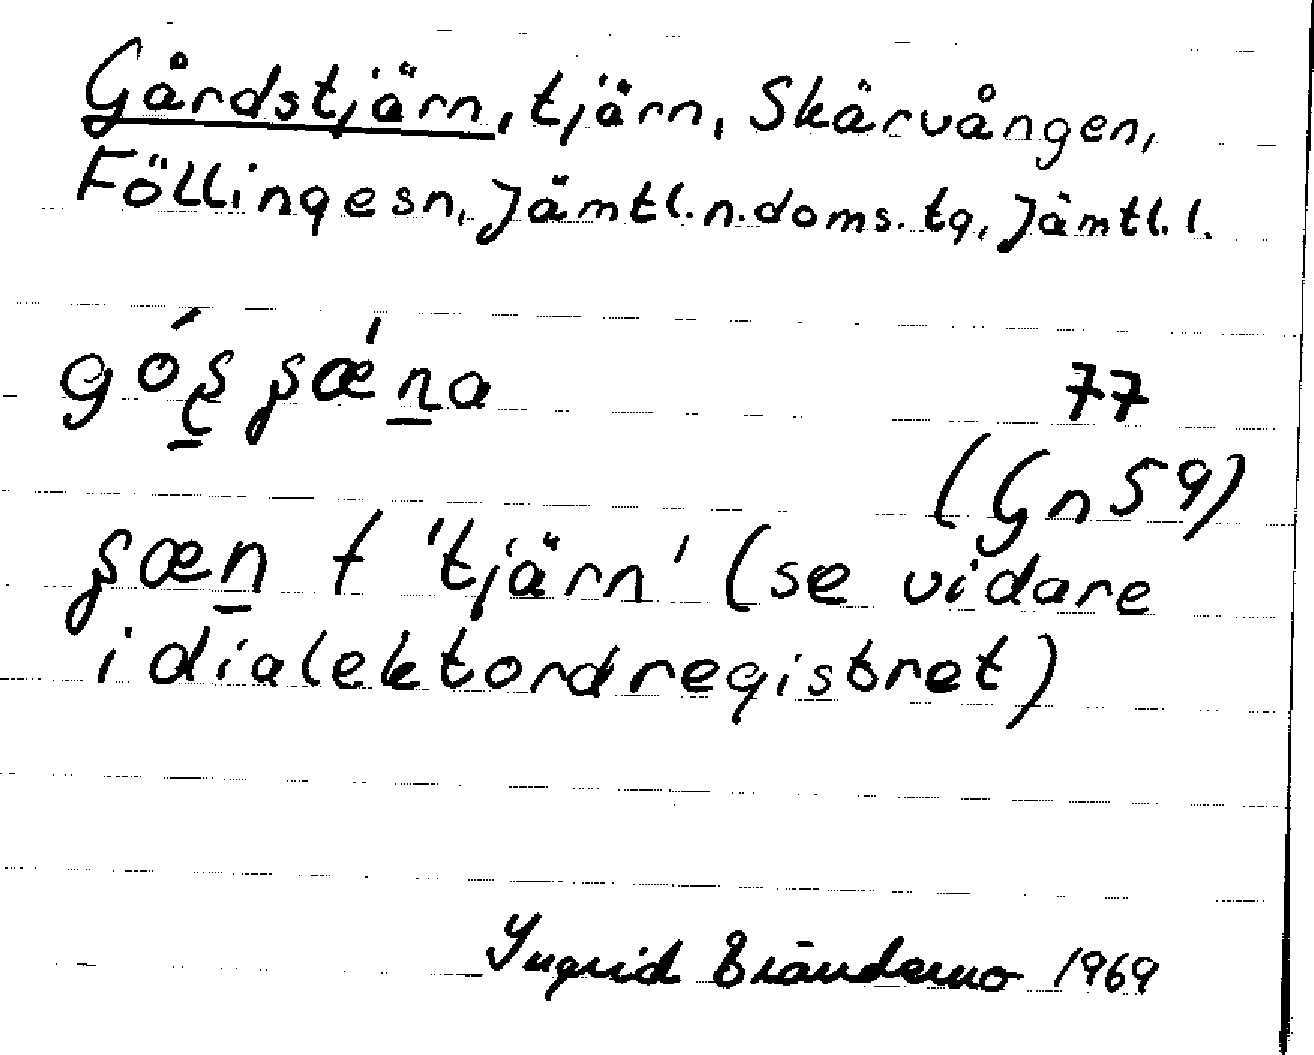 Gårdstjärn, tjärn, Skärvången,
Föllinge sn, Jämtl. n. doms. tg, Jämtl. l.
77
(Gn 59)
f 'tjärn' (se vidare
i dialektordregistret)
Ingrid 1969